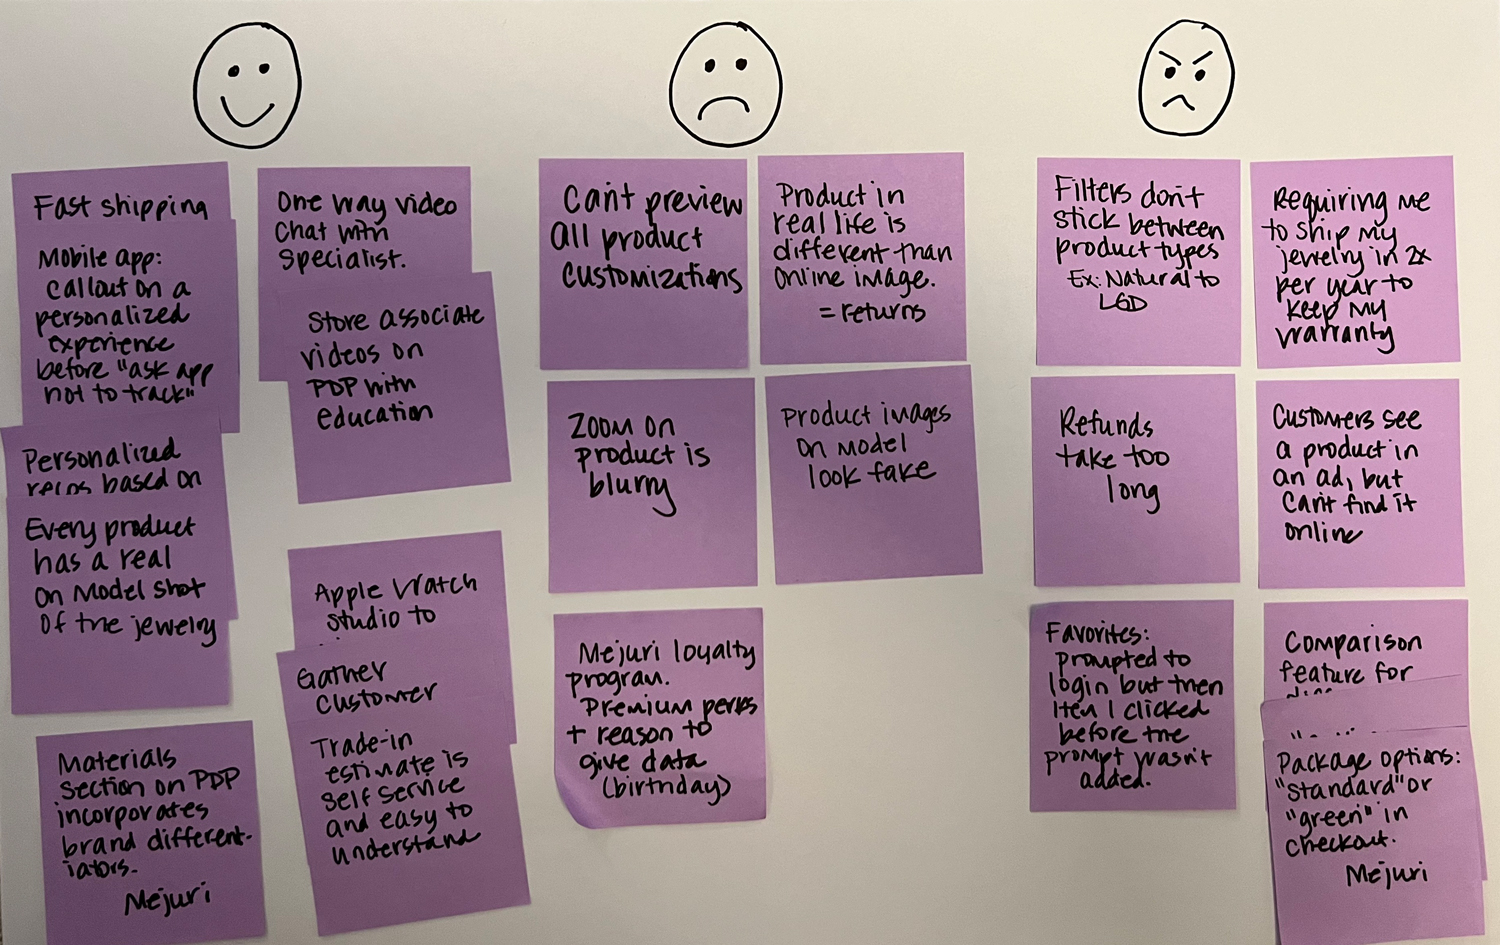 Fast shipping
Mobile app:
callout on a
personalized
experience
before "ask app
not to track"
Personalized
recos based on
Every product
has a real
on model shot
of the jewelry
Materials
section on PDP
incorporates
brand different-
iators.
Mejuri
One way video
chat with
specialist.
Store associate
videos on
PDP with
education
Apple Watch
studio to
Gather
customer
Trade-in
estimate is
self service
and easy to
understand
Can't preview
all product
customizations
Product in
real life is
different than
online image.
= returns
Zoom on
product is
blurry
Product images
on model
look fake
Mejuri loyalty
program.
Premium perks
+ reason to
give data
(birthday)
Filters don't
stick between
product types
Ex: Natural to
LGD
Requiring me
to ship my
jewelry in 2x
per year to
keep my
warranty
Refunds
take too
long
Customers see
a product in
an ad, but
can't find it
online
Favorites:
prompted to
login but then
Item I clicked
before the
prompt wasn't
added.
Comparison
feature for
Package options:
"standard" or
"green" in
checkout.
Mejuri